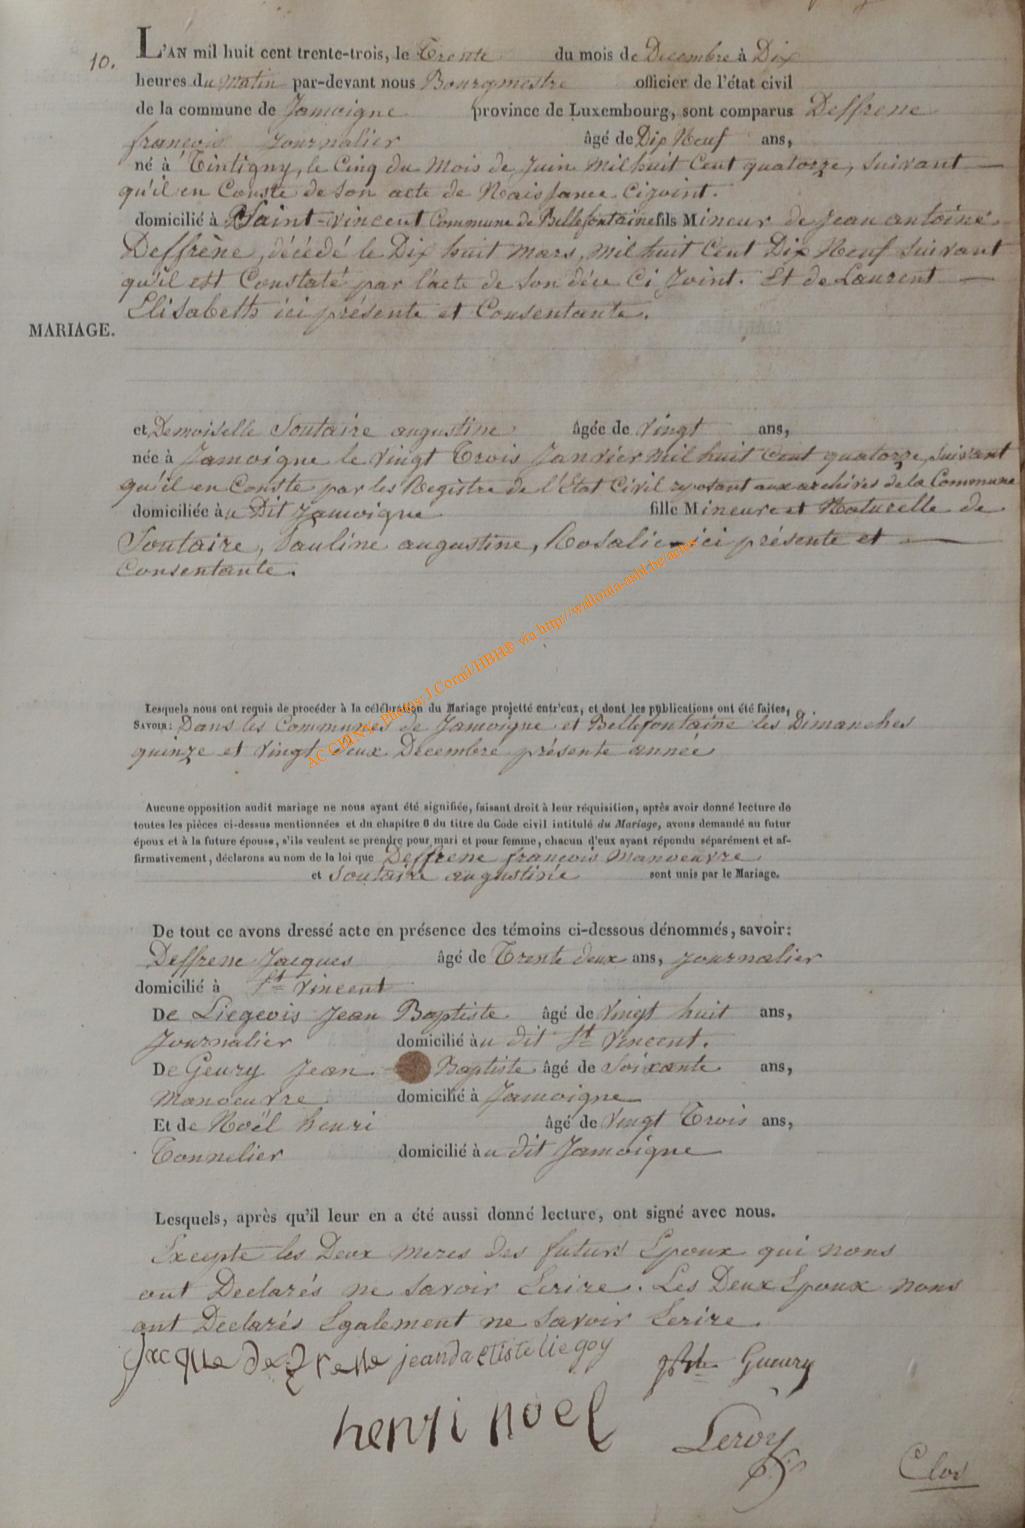 10. L'AN mil huit cent trente-trois, le Trente du mois de Decembre à Dix
heures du Matin par-devant nous Bourgmestre officier de l'état civil
de la commune de Jamoigne province de Luxembourg, sont comparus Deffrene
françois Journalier âgé de Dix Neuf ans,
né à Tintigny, le Cinq du Mois de Juin Mil huit Cent quatorze, Suivant
qu'il en Conste de Son acte de Naissance Cijoint.
domicilié à Saint-Vincent Commune de Bellefontaine fils Mineur de Jean antoine
Deffrène, décédé le Dix huit Mars, Mil huit Cent Dix Neuf Suivant
qu'il est Constaté par l'acte de Son déce Ci Joint. Et de Laurent
Elisabeth ici présente et Consentante.
MARIAGE.
et Demoiselle Soutaire augustine âgée de Vingt ans,
née à Jamoigne le Vingt Trois Janvier Mil huit Cent quatorze, Suivant
qu'il en Conste par les Registre de l'Etat Civil reposant aux archives de la Commune
domiciliée au Dit Jamoigne fille Mineure et Naturelle de
Soutaire, Pauline augustine, Rosalie ici présente et
Consentante.
Lesquels nous ont requis de procéder à la célébration du Mariage projetté entr'eux, et dont les publications ont été faites,
SAVOIR: Dans les Communes de Jamoigne et Bellefontaine les Dimanches
quinze et Vingt deux Decembre présente année
AC CHINY - Photos J.Cornil HBH® via http://wallonia-asbl.be/actes
Aucune opposition audit mariage ne nous ayant été signifiée, faisant droit à leur réquisition, après avoir donné lecture de
toutes les pièces ci-dessus mentionnées et du chapitre 6 du titre du Code civil intitulé du Mariage, avons demandé au futur
époux et à la future épouse, s'ils veulent se prendre pour mari et pour femme, chacun d'eux ayant répondu séparément et af-
firmativement, déclarons au nom de la loi que Deffrene françois Manoeuvre
et Soutaire augustine sont unis par le Mariage.
De tout ce avons dressé acte en présence des témoins ci-dessous dénommés, savoir:
Deffrene Jacques âgé de Trente deux ans, Journalier
domicilié à St Vincent
De Liegeois Jean Baptiste âgé de Vingt huit ans,
Journalier domicilié au dit St Vincent.
De Geury Jean Baptiste âgé de Soixante ans,
Manoeuvre domicilié à Jamoigne
Et de Noël henri âgé de Vingt Trois ans,
Tonnelier domicilié au dit Jamoigne
Lesquels, après qu'il leur en a été aussi donné lecture, ont signé avec nous.
Excepte les Deux Meres des futurs Epoux qui nous
ont Declarés ne Savoir Ecrire. Les Deux Epoux nous
ont Declarés Egalement ne Savoir Ecrire.
Jacque deffrene jean batiste liegoy Gueury
henri noel Leroy
Clos